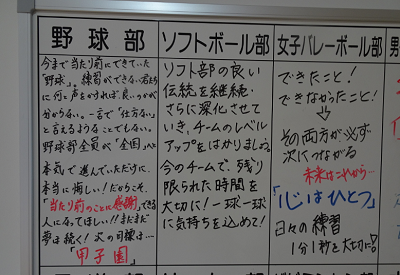 野球部
今まで当たり前にできていた
「野球」。練習ができない君たち
に何と声をかければ良いのかが
分からない。一言で「仕方ない」
と言えるようなことでもない。
野球部全員が「全国」へと
本気で進んでいただけに、
本当に悔しい!だからこそ、
「当たり前のことに感謝」できる
人になってほしい!!まだまだ
夢は続く!次の目標は…
「甲子園」
ソフトボール部
ソフト部の良い
伝統を継続・
さらに深化させて
いき、チームのレベル
アップをはかりましょう。
今のチームで、残り
限られた時間を
大切に!一球一球
に気持ちを込めて!
女子バレーボール部
できたこと!
できなかったこと!
↓
その両方が必ず
次につながる
未来はこれから…
「心はひとつ」
日々の練習
1分1秒を大切に!
男